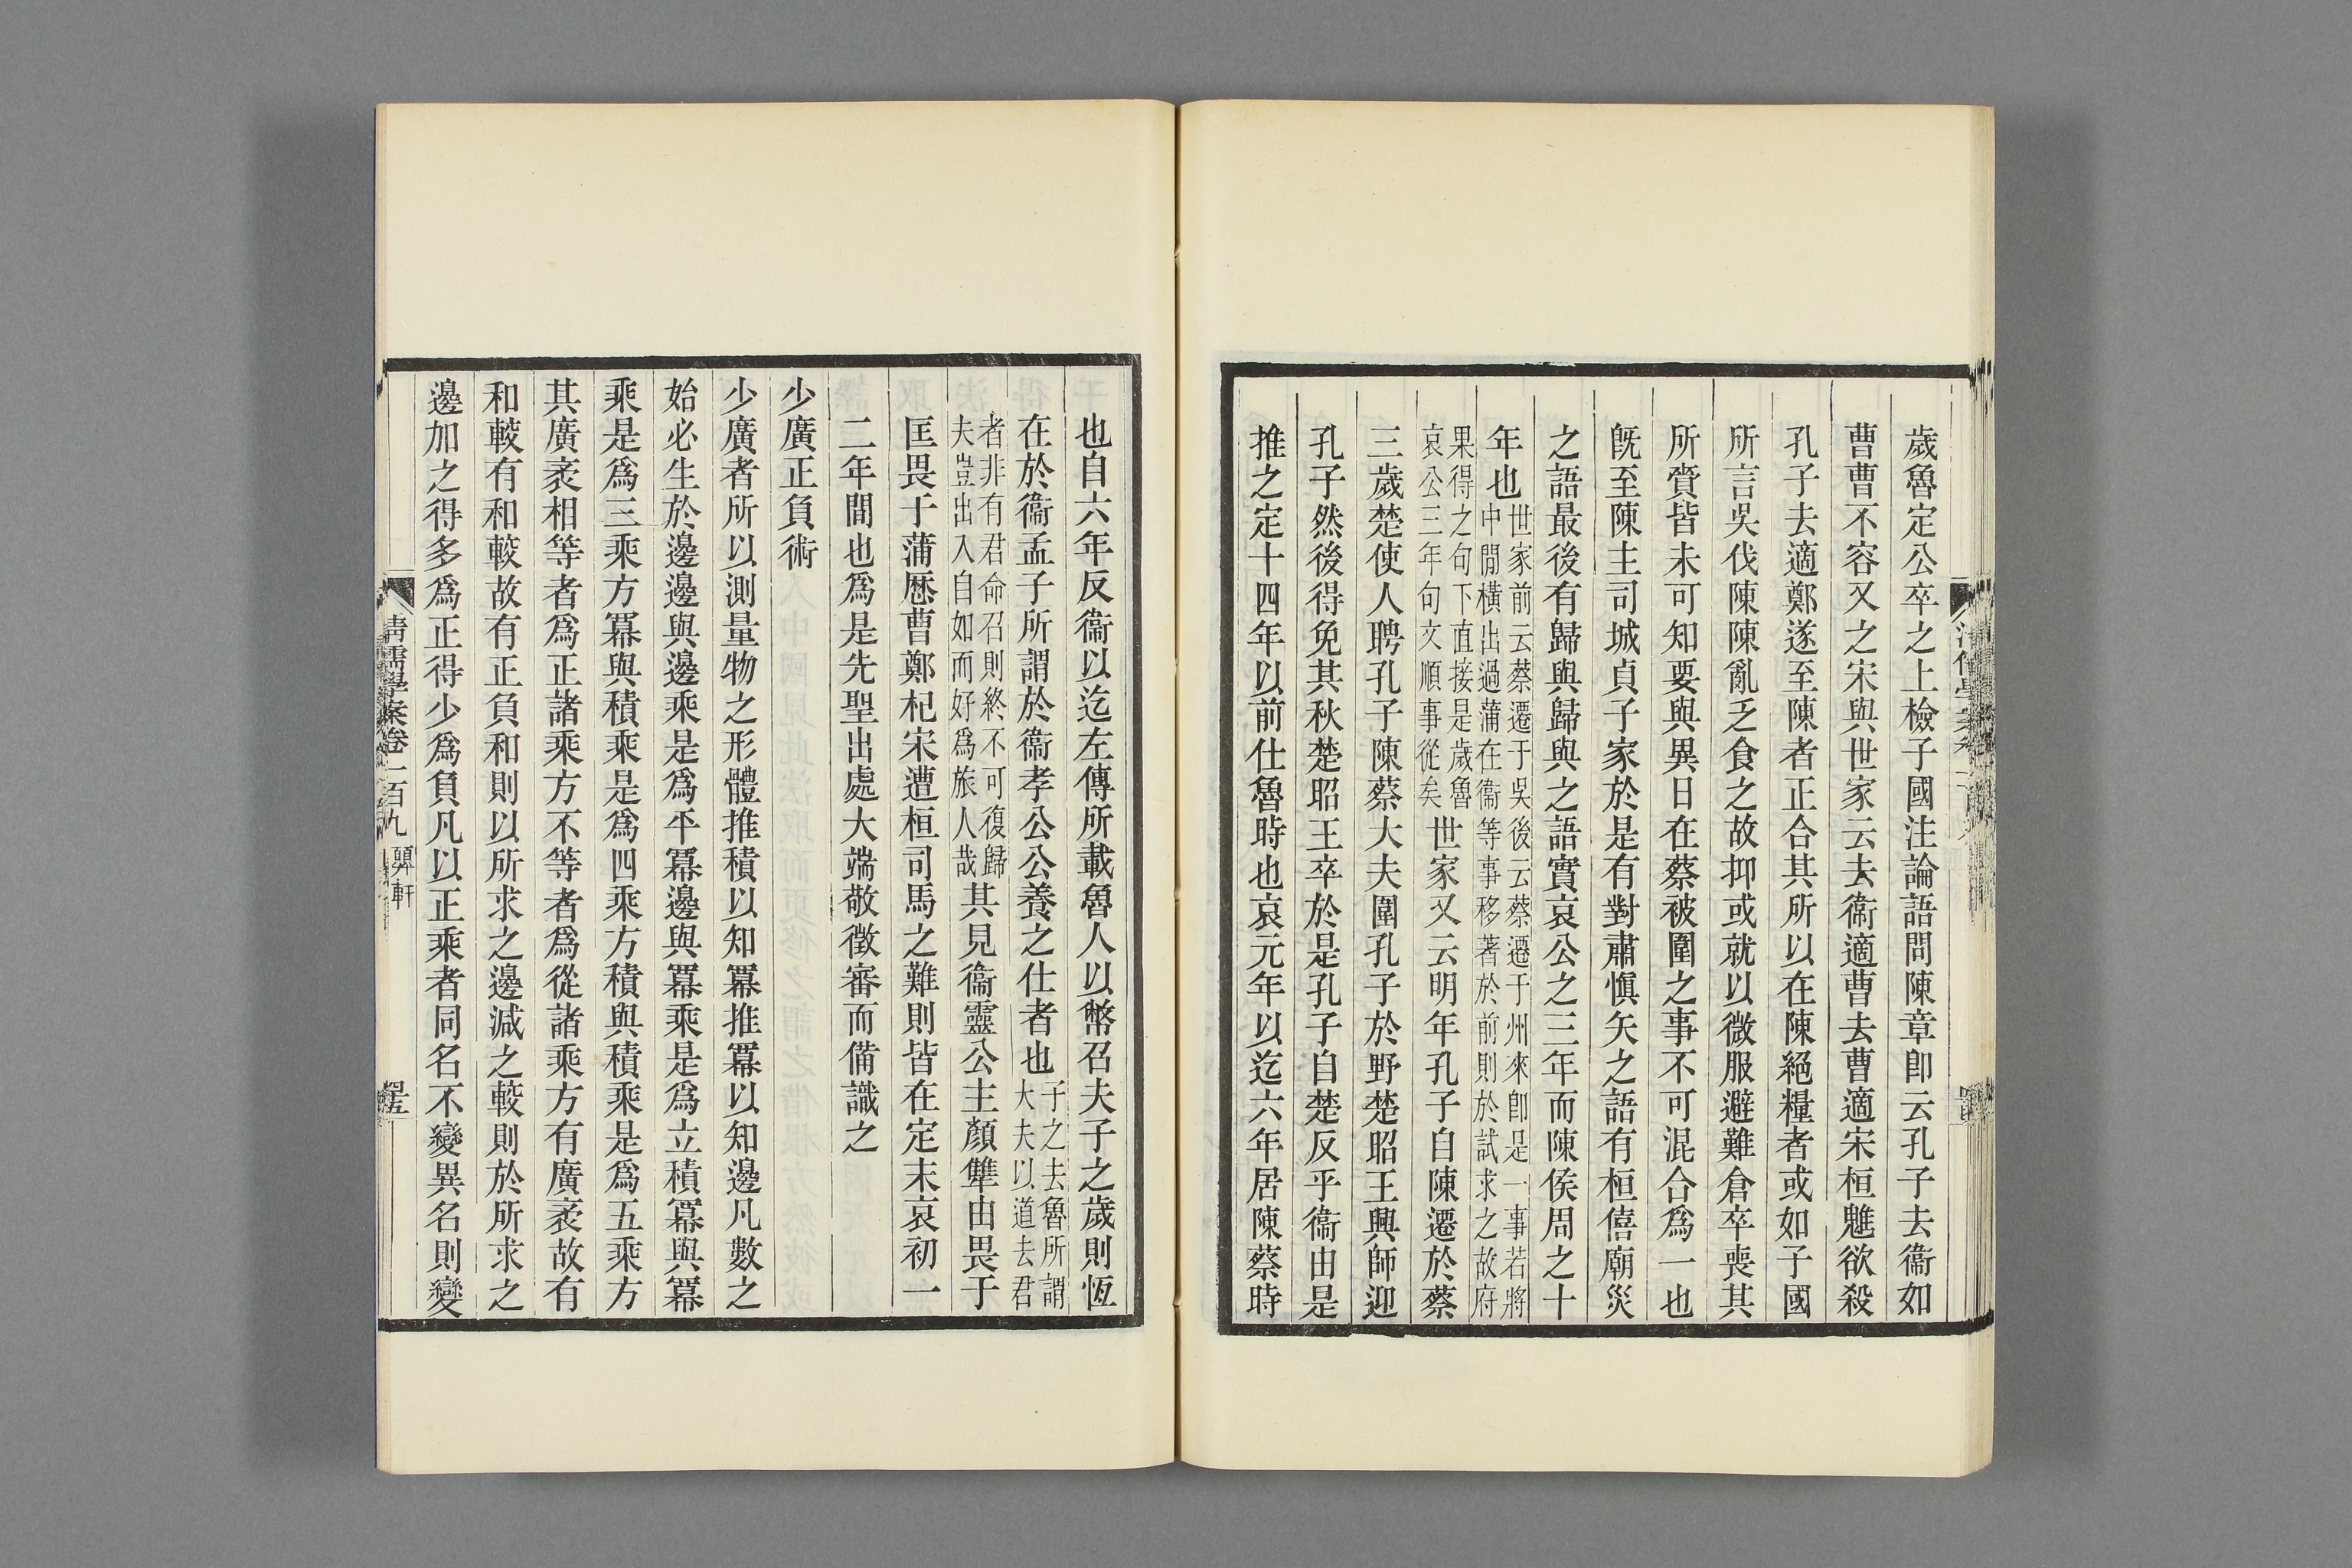 歲魯定公卒之上檢子國注論語問陳章卽云孔子去衞如
曹曹不容又之宋與世家云去衞適曹去曹適宋桓魋欲殺
孔子去適鄭遂至陳者正合其所以在陳絕糧者或如子國
所言吳伐陳陳亂乏食之故抑或就以微服避難倉卒喪其
所賷皆未可知要與異日在蔡被圍之事不可混合爲一也
旣至陳主司城貞子家於是有對肅愼矢之語有桓僖廟災
之語最後有歸與歸與之語實哀公之三年而陳侯周之十
年也世家前云蔡遷于吳後云蔡遷于州來卽是一事若將
中閒橫出過蒲在衞等事移著於前則於試求之故府
果得之句下直接是歲魯
哀公三年句文順事從矣世家又云明年孔子自陳遷於蔡
三歲楚使人聘孔子陳蔡大夫圍孔子於野楚昭王興師迎
孔子然後得免其秋楚昭王卒於是孔子自楚反乎衞由是
推之定十四年以前仕魯時也哀元年以迄六年居陳蔡時
也自六年反衞以迄左傳所載魯人以幣召夫子之歲則恆
在於衞孟子所謂於衞孝公公養之仕者也子之去魯所謂
大夫以道去君
者非有君命召則終不可復歸
夫豈出入自如而好爲旅人哉其見衞靈公主顏讐由畏于
匡畏于蒲歷曹鄭杞宋遭桓司馬之難則皆在定末哀初一
二年間也爲是先聖出處大端敬徵審而備識之
少廣正負術
少廣者所以測量物之形體推積以知冪推冪以知邊凡數之
始必生於邊邊與邊乘是爲平冪邊與冪乘是爲立積冪與冪
乘是爲三乘方冪與積乘是爲四乘方積與積乘是爲五乘方
其廣袤相等者爲正諸乘方不等者爲從諸乘方有廣袤故有
和較有和較故有正負和則以所求之邊減之較則於所求之
邊加之得多爲正得少爲負凡以正乘者同名不變異名則變
清儒學案卷一百九 顨軒